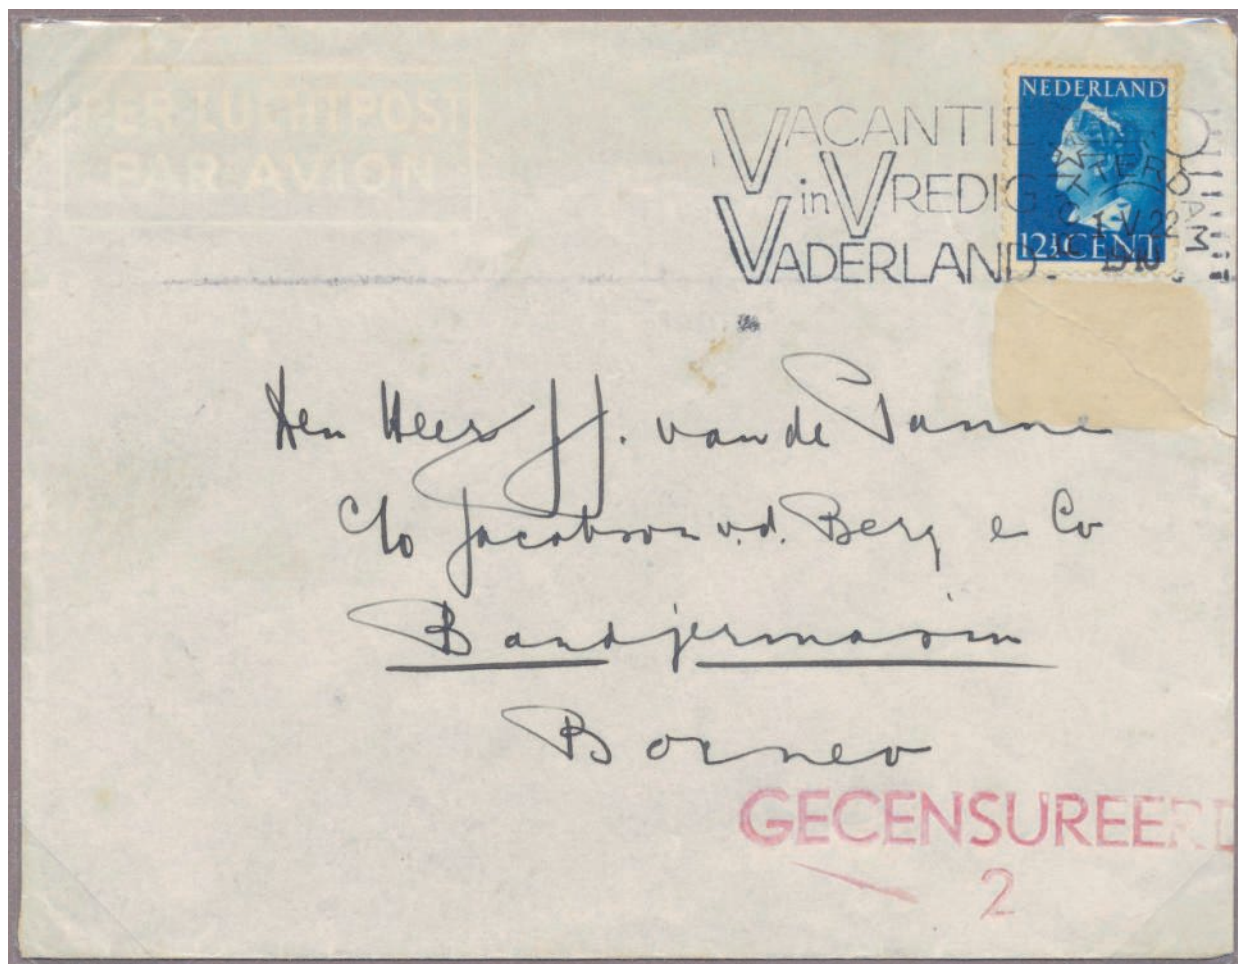 PER LUCHTPOST
PAR AVION
VACANTIE
in VREDIG
VADERLAND
NEDERLAND
12½ CENT
ROTTERDAM
1 V 22
1940
Den Heer J.J. van de Panne
c/o Jacobson v.d. Berg & Co
Bandjermasin
Borneo
GECENSUREERD
2